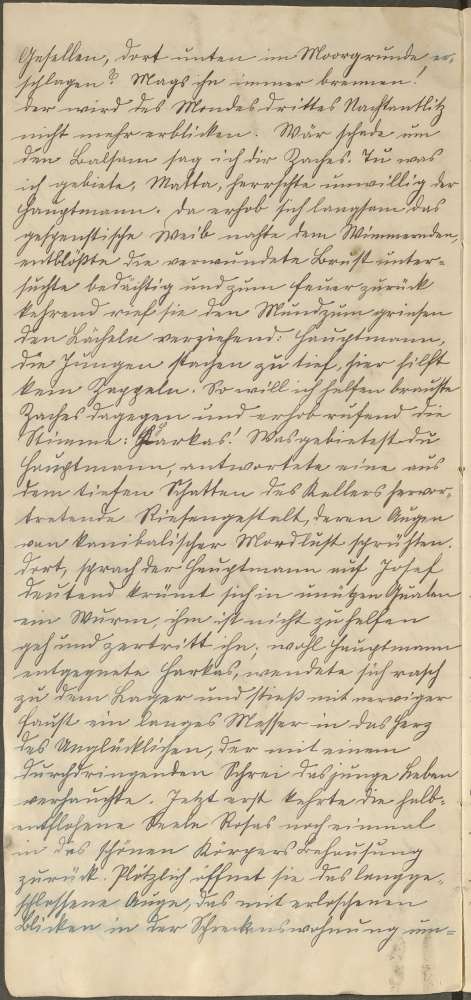 Gesellen, dort unten im Moorgrunde er-
schlagen? Mags ihn immer brennen!
der wird des Mondes drittes Nachtantlitz
nicht mehr erblicken. Wär schade um
den Balsam sag ich dir Zaches. Tu was
ich gebiete, Matta, herrschte unwillig der
Hauptmann. Da erhob sich langsam das
gespenstische Weib nahte dem Wimmernden,
entblößte die verwundete Brust unter-
suchte bedächtig und zum Feuer zurück
kehrend rief sie den Mund zum grinsen
den Lächeln verziehend: Hauptmann,
die Jungen stachen zu tief, hier hilft
kein Zappeln. So will ich helfen brauste
Zaches dagegen und erhob rufend die
Stimme: Farkas! Was gebietest du
Hauptmann, antwortete eine aus
dem tiefen Schatten des Kellers hervor-
tretende Riesengestalt, deren Augen
von kanibalischer Mordlust sprühten.
Dort, sprach der Hauptmann auf Josef
deutend krümt sich in unützen Qualen
ein Wurm, ihm ist nicht zu helfen
geh und zertritt ihn; wohl Hauptmann
entgegnete Farkas, wendete sich rasch
zu dem Lager und stieß mit nerviger
Faust ein langes Messer in das Herz
des Unglücklichen, der mit einem
durchdringenden Schrei das junge Leben
verhauchte. Jetzt erst kehrte die halb-
entflohene Seele Rosas noch einmal
in des schönen Körpers Behausung
zurück. Plötzlich öffnet sie das langge-
schlossene Auge, das mit erloschenen
Blicken in der Schreckenswohnung um-